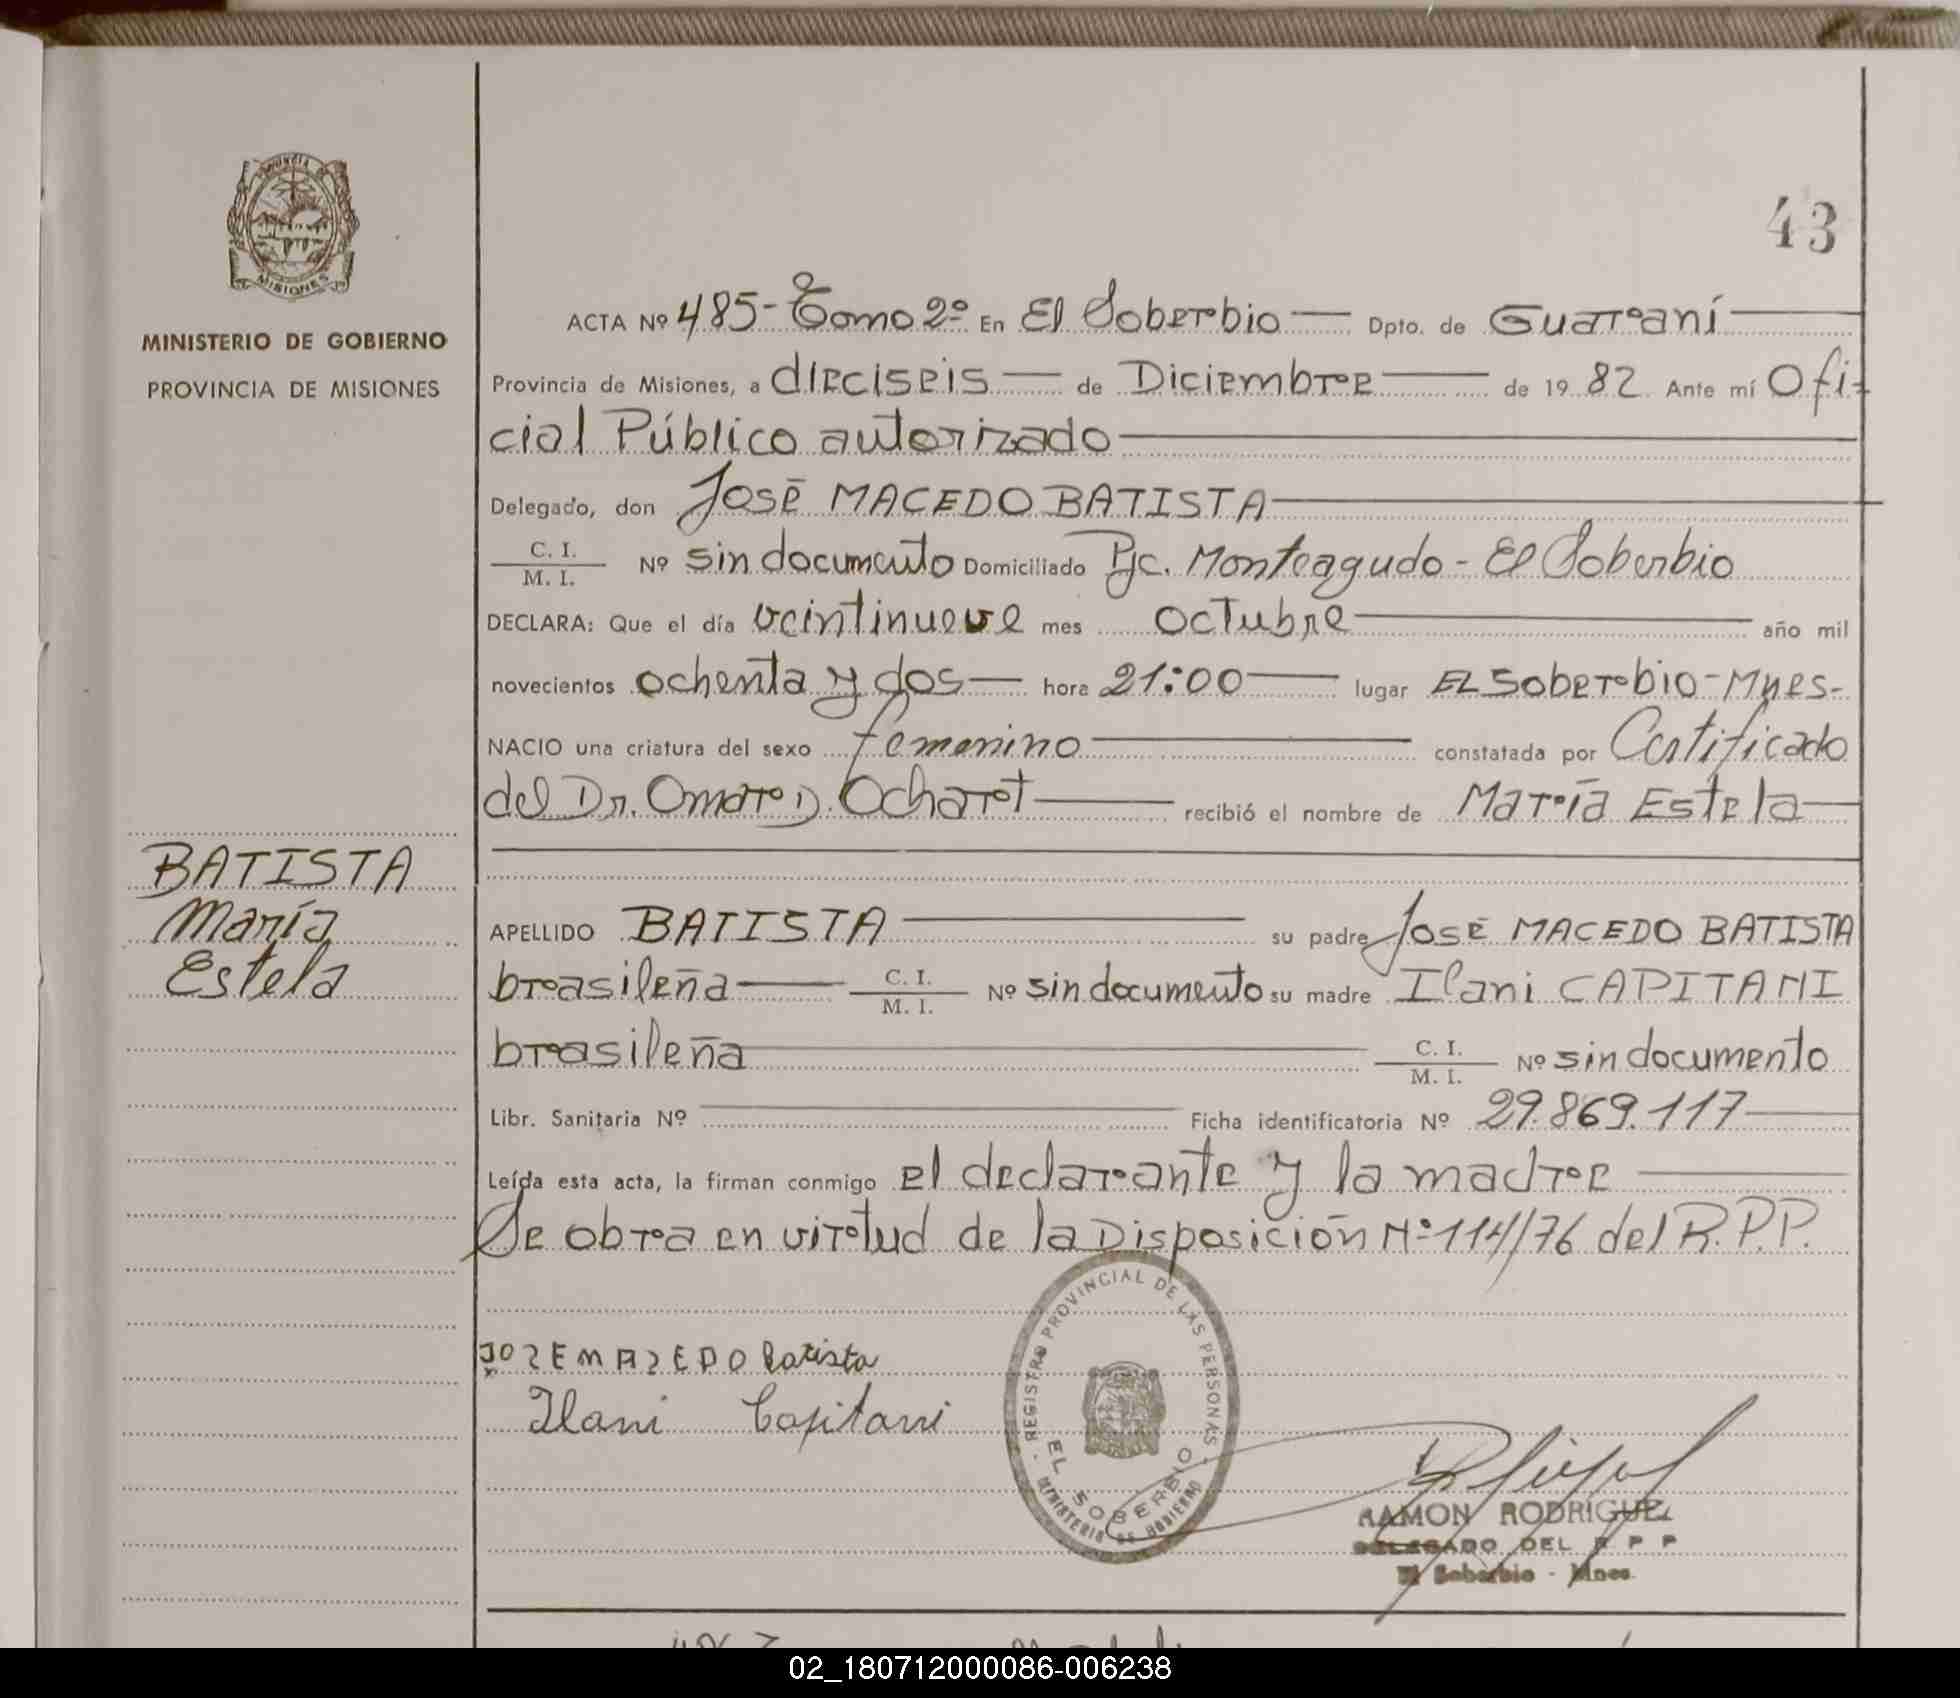 PROVINCIA DE
MISIONES
MINISTERIO DE GOBIERNO
PROVINCIA DE MISIONES
43
ACTA Nº 485- Tomo 2º En El Soberbio Dpto. de Guaraní
Provincia de Misiones, a dieciseis de Diciembre de 19 82 Ante mí Ofi-
cial Público autorizado
Delegado, don José MACEDO BATISTA
C. I.
M. I. Nº sin documento Domiciliado Pje. Monteagudo - El Soberbio
DECLARA: Que el día veintinueve mes octubre año mil
novecientos ochenta y dos hora 21:00 lugar EL Soberbio - Mnes-
NACIO una criatura del sexo femenino constatada por Certificado
del Dr. Omar D. Ocharot recibió el nombre de María Estela
BATISTA
María
Estela
APELLIDO BATISTA su padre José MACEDO BATISTA
brasileña C. I.
M. I. Nº sin documento su madre Ilani CAPITANI
brasileña C. I.
M. I. Nº sin documento
Libr. Sanitaria Nº Ficha identificatoria Nº 29.869.117
Leída esta acta, la firman conmigo el declarante y la madre
Se obra en virtud de la Disposición Nº 114/76 del R.P.P.
JOZE MAZEDO Batista
Ilani Capitani
REGISTRO PROVINCIAL DE LAS PERSONAS
EL SOBERBIO
MINISTERIO DE GOBIERNO
RAMON RODRIGUEZ
DELEGADO DEL R P P
El Soberbio - Mnes.
02_180712000086-006238